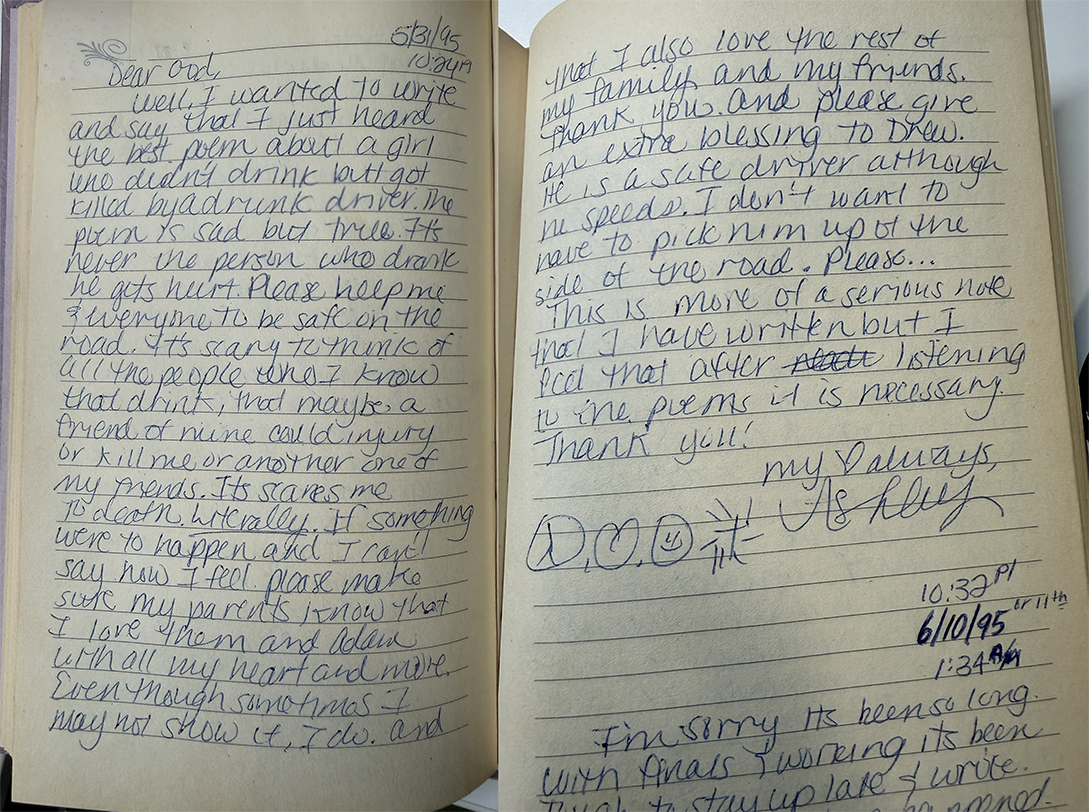 5/31/95
10:24PM
Dear God,
Well, I wanted to write
and say that I just heard
the best poem about a girl
who didn't drink but got
killed by a drunk driver. The
poem is sad but true. Its
never the person who drank
he gets hurt. Please help me
& everyone to be safe on the
road. It's scary to think of
all the people who I know
that drink, that maybe a
friend of mine could injury
or kill me or another one of
my friends. Its scares me
To death, literally. If something
were to happen and I can't
say how I feel please make
sure my parents know that
I love them and Adam
with all my heart and more.
Even though sometimes I
may not show it, I do. and
that I also love the rest of
my family and my friends.
Thank you. And please give
an extra blessing to Drew.
He is a safe driver although
he speeds. I don't want to
have to pick him up of the
side of the road. Please...
This is more of a serious note
that I have written but I
feel that after listening
to the poems it is necessary.
Thank you!
my ♡ always,
Ashley
10:32 PM
6/10/95 or 11th
1:34 AM
I'm sorry its been so long.
with finals & working its been
tough to stay up late & write.